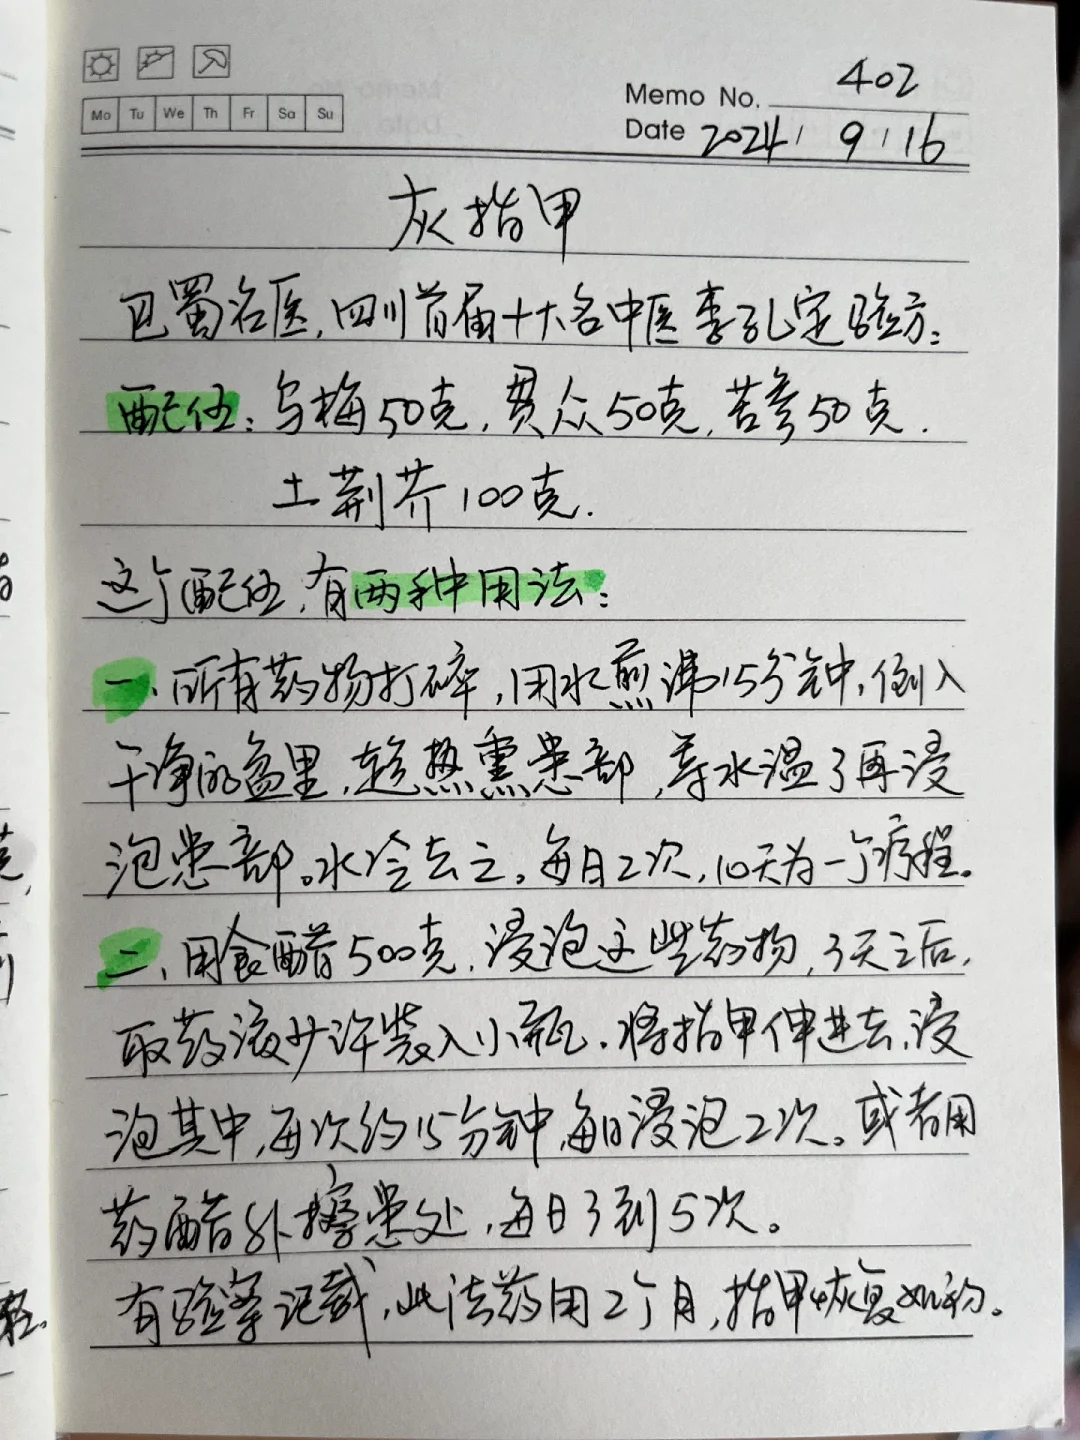 402
Memo No.
Mo Tu We Th Fr Sa Su
Date 2024 9 16
灰指甲
巴蜀名医,四川首届十大名中医李孔定验方:
配伍:乌梅50克,贯众50克,苦参50克.
土荆芥100克.
这个配伍,有两种用法:
一、所有药物打碎,用水煎沸15分钟,倒入
干净的盆里,趁热熏患部,等水温了再浸
泡患部。水冷去之。每日2次,10天为一个疗程。
二、用食醋500克,浸泡这些药物,3天之后,
取药液少许装入小瓶.将指甲伸进去,浸
泡其中,每次约15分钟,每日浸泡2次。或者用
药醋外擦患处,每日3到5次。
有验案记载,此法药用2个月,指甲恢复如初。